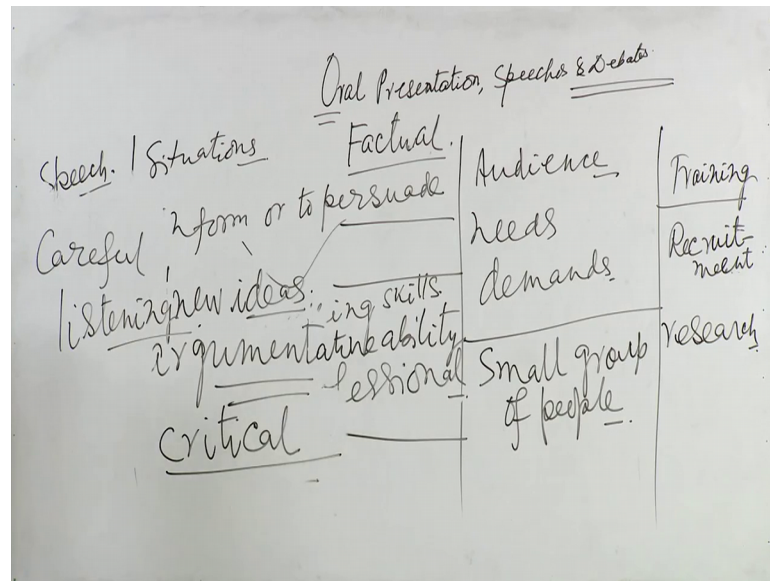 Oral Presentation, Speeches & Debates.
Speech. / Situations
Factual.
Careful inform or to persuade
listening new ideas.
ing skills.
argumentative ability
fessional
critical
Audience
needs
demands
Small group
of people
Training
Recruit-
ment
research